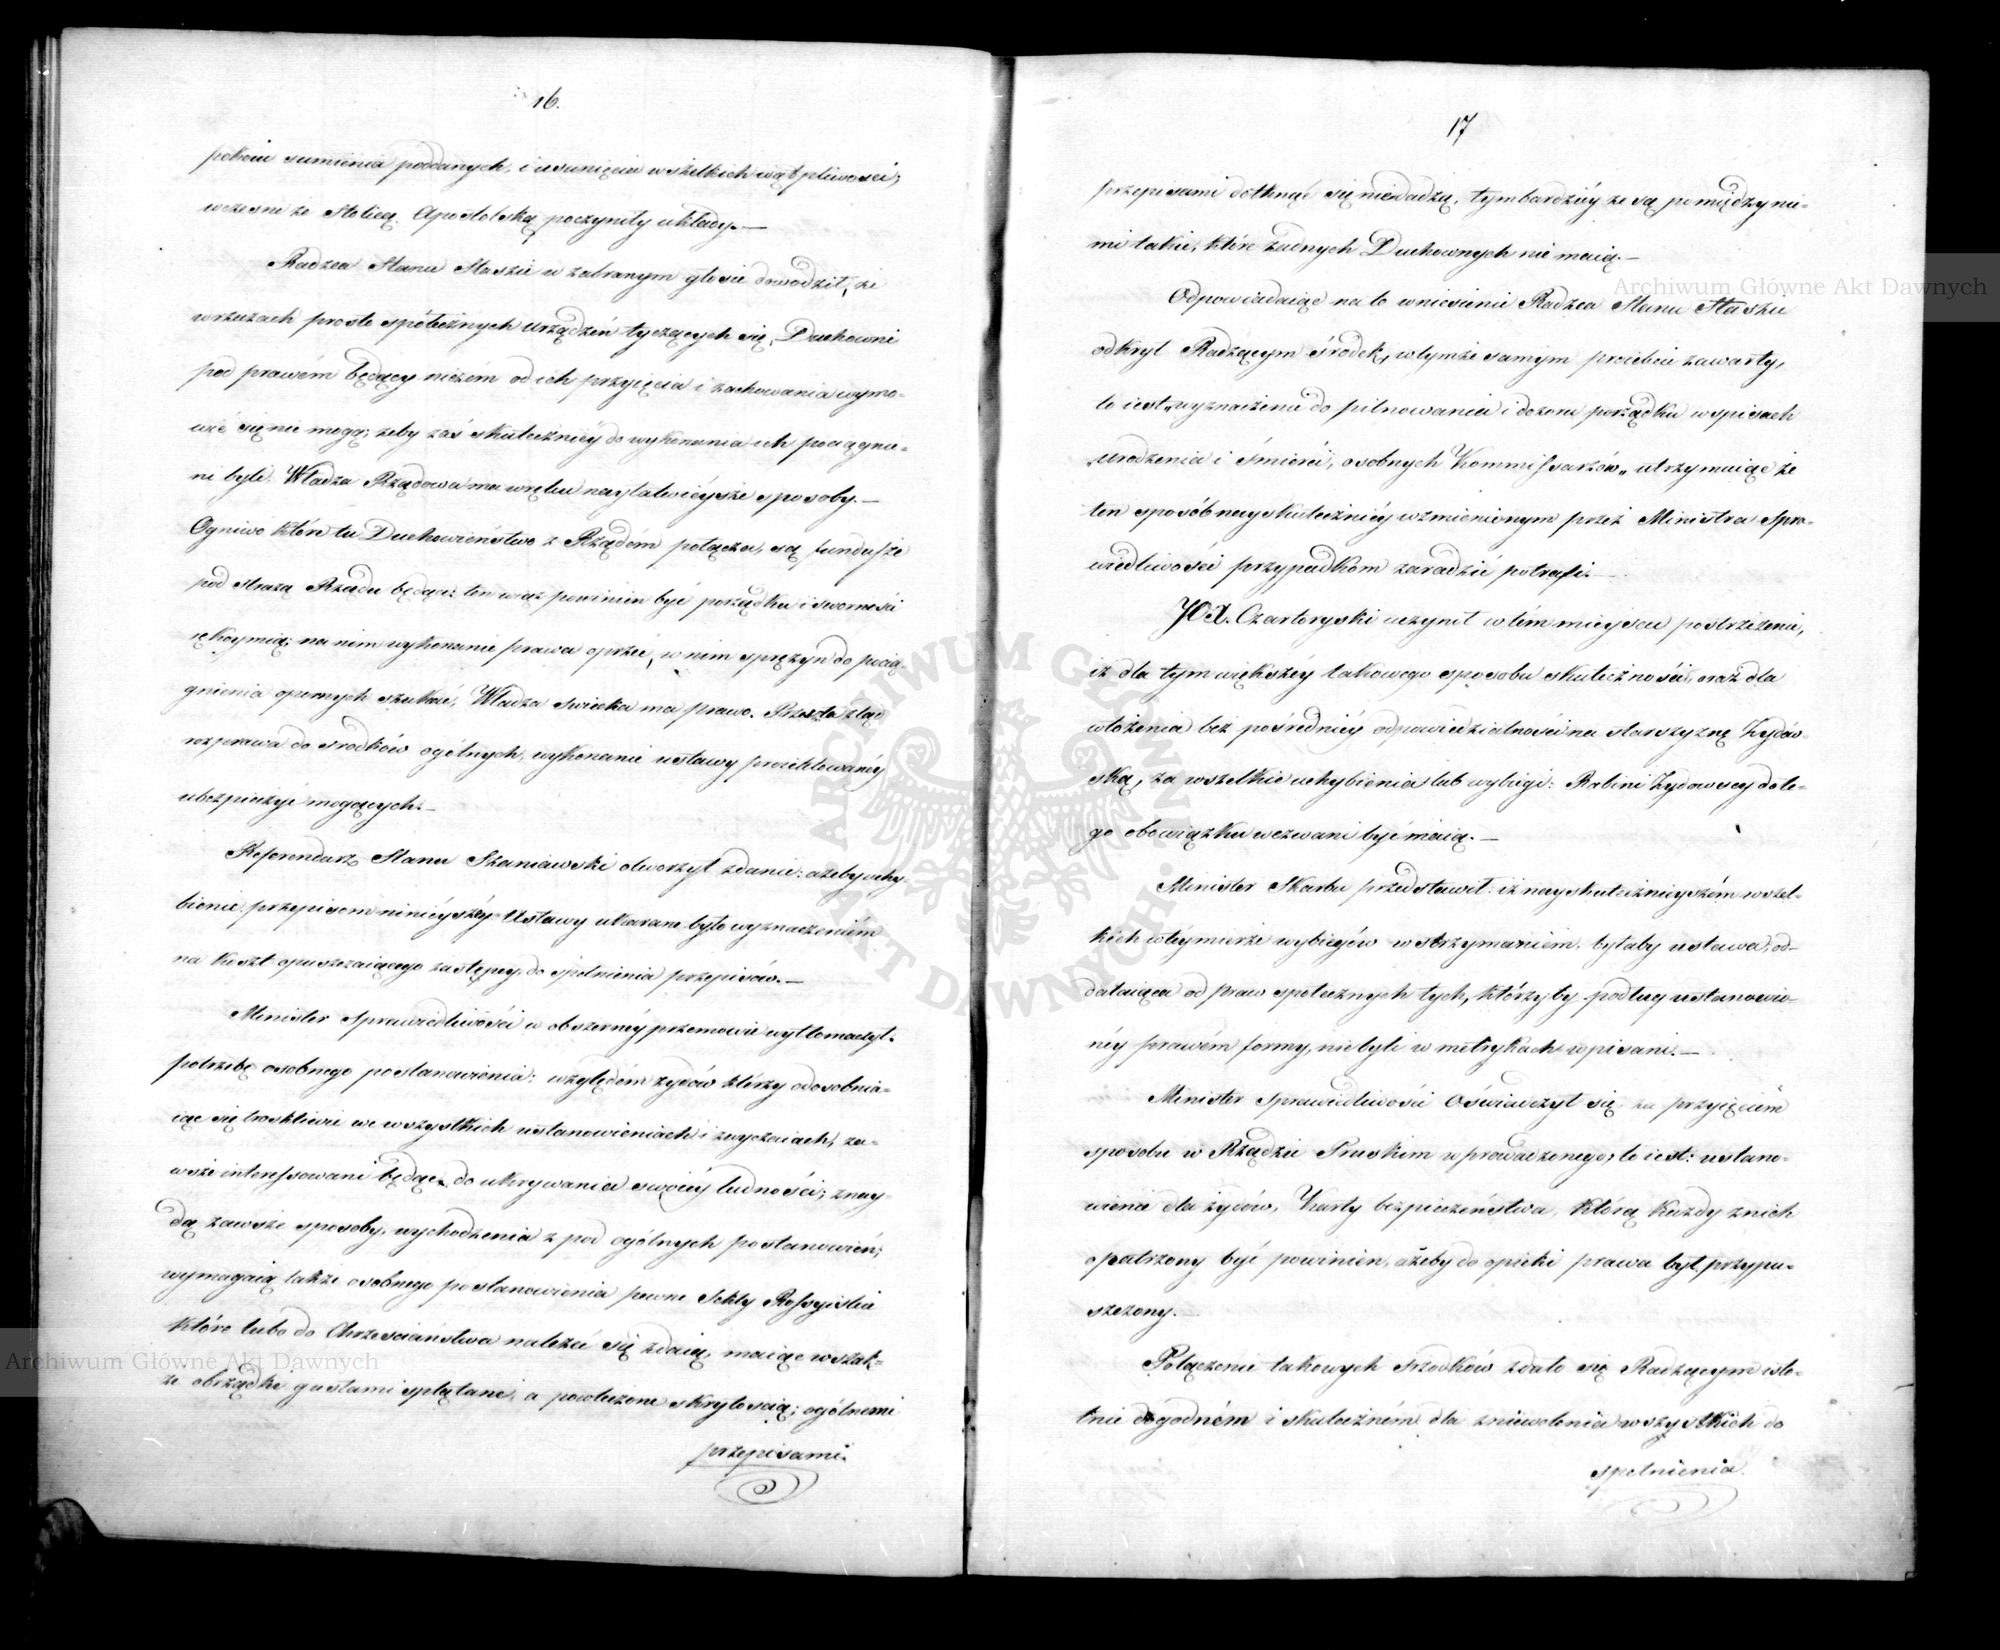 16.
pokoiu sumienia poddanych, i usunięcia wszelkich wątpliwości;
wczesne ze Stolicą Apostolską poczyniły układy.—
Radzca Stanu Staszic w zabranym głosie dowodził, że
w rzeczach prosto społecznych urządzeń tyczących się, Duchowni
pod prawém będący niczem od ich przyięcia i zachowania wymo-
wić się nie mogą; żeby zaś skuteczniéy do wykonania ich pociągnie-
ni byli. Władza Rządowa ma w ręku nayłatwieysze sposoby.—
Ogniwo które tu Duchowieństwo z Rządém połącza, są fundusze
pod strażą Rządu będące; ten więc powinien być porządku i sworności
rękoymią; na nim wykonanie prawa oprzeć, w nim sprężyn do pocią-
gnienia opornych szukać, Władza świecka ma prawo. Przeszła ztąd
rozprawa do srodków ogólnych, wykonanie ustawy proiektowanéy
ubezpieczyć mogących.—
Referendarz Stanu Szaniawski otworzył zdanie: ażeby uchy-
bienie przepisom ninieyszéy Ustawy ukarane było wyznaczeniém
na koszt opuszczaiącego zastępcy, do spełnienia przepisów.—
Minister Sprawiedliwości w obszernéy przemowie wytłomaczył
potrzebę osobnego postanowienia: względém żydów którzy odosobnia-
iąc się troskliwie we wszystkich ustanowieniach i zwyczaiach, za-
wsze interessowani będąc, do ukrywania swoiéy ludności; znay-
dą zawsze sposoby, wychodzenia z pod ogólnych postanowień;
wymagaią także osobnego postanowienia pewne Sekty Rossyiskie
które lubo do Chrześciaństwa należeć się zdaią, maiąc wszak-
że obrządki gusłami splątane, a powleczone skrytością; ogólnemi
przepisami.
17
przepisami dotknąć się niedadzą, tymbardziéy że są pomiędzy ni-
mi takie, które żadnych Duchownych nie maią.—
Odpowiadaiąc na to wniesienie Radzca Stanu Staszic
odkrył Radzącym środek, w tymże samym proiekcie zawarty,
to iest „wyznaczenie do pilnowania i dozoru porządku w spisach
„urodzenia i śmierci, osobnych Kommissarzów„ utrzymuiąc że
ten sposób nayskuteczniéy wzmienionym przez Ministra Spra-
wiedliwości przypadkóm zaradzić potrafi.—
JOX. Czartoryski uczynił w tém mieyscu postrzeżenie,
iż dla tym większéy takowego sposobu skuteczności, oraz dla
włożenia bez pośredniéy odpowiedzialności na starszyznę Żydow-
ską, za wszelkie uchybienia lub wybiegi: Rabini Żydowscy do te-
go obowiązku wezwani być maią.—
Minister Skarbu przedstawił: iż nayskutecznieyszém wszel-
kich w téy mierze wybiegów wstrzymaniem, byłaby ustawa, od-
dalaiąca od praw społecznych tych, którzyby podług ustanowio-
néy prawém formy, nie byli w metrykach wpisani.—
Minister Sprawiedliwości Oświadczył się za przyięciém
sposobu w Rządzie Pruskim wprowadzonego, to iest: ustano-
wienia dla żydów, Karty bezpieczeństwa, którą każdy z nich
opatrzony być powinien, ażeby do opieki prawa był przypu-
szczony.—
Połączenie takowych Srzodków zdało się Radzącym isto-
tnie dogodném i skuteczném dla zniewolenia wszystkich do
spełnienia.
Archiwum Główne Akt Dawnych
Archiwum Główne Akt Dawnych
ARCHIWUM GŁÓWNE AKT DAWNYCH